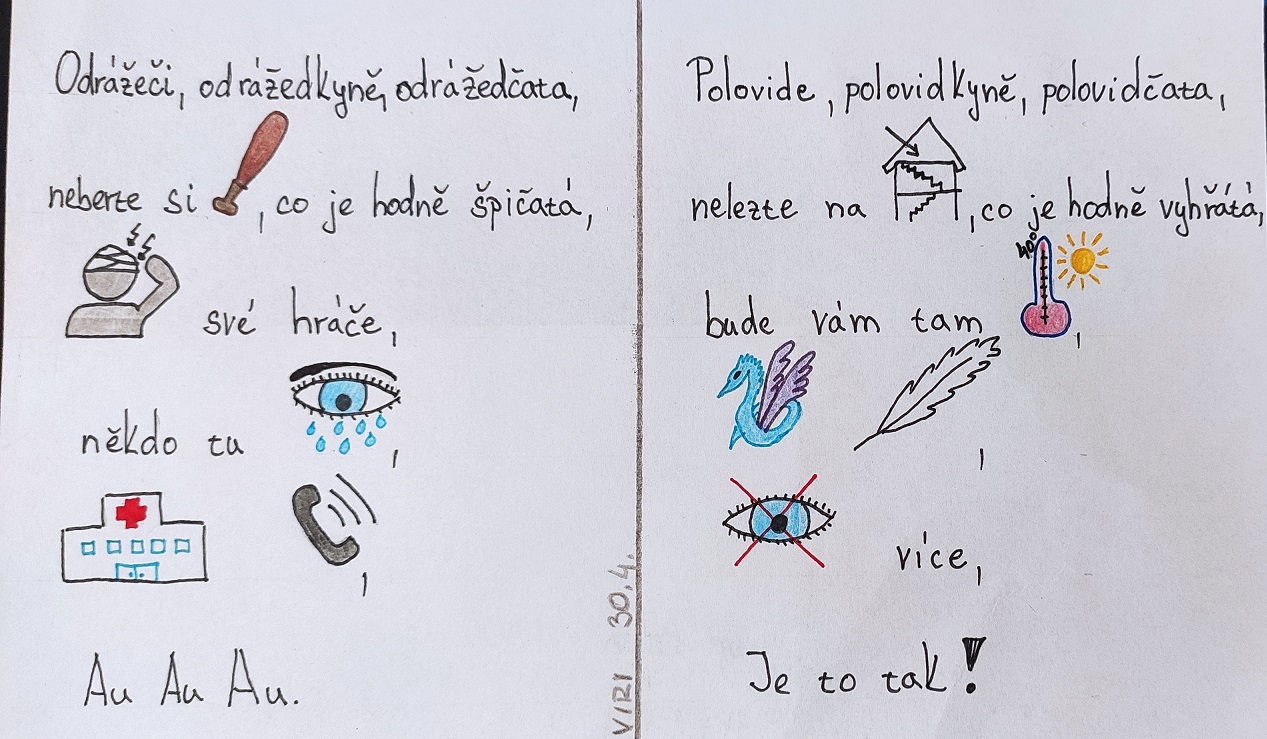 Odrážeči, odrážedkyně, odrážedčata,
neberte si , co je hodně špičatá,
své hráče,
někdo tu ,
,
Au Au Au.
VIRI 30.4.
Polovide, polovidkyně, polovidčata,
nelezte na , co je hodně vyhřátá,
40°
bude vám tam ,
,
více,
Je to tak!